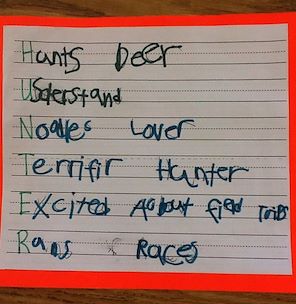 Hunts Deer
Understand
Noodles Lover
Terrifir Hunter
Excited About field Trips
Rans Races